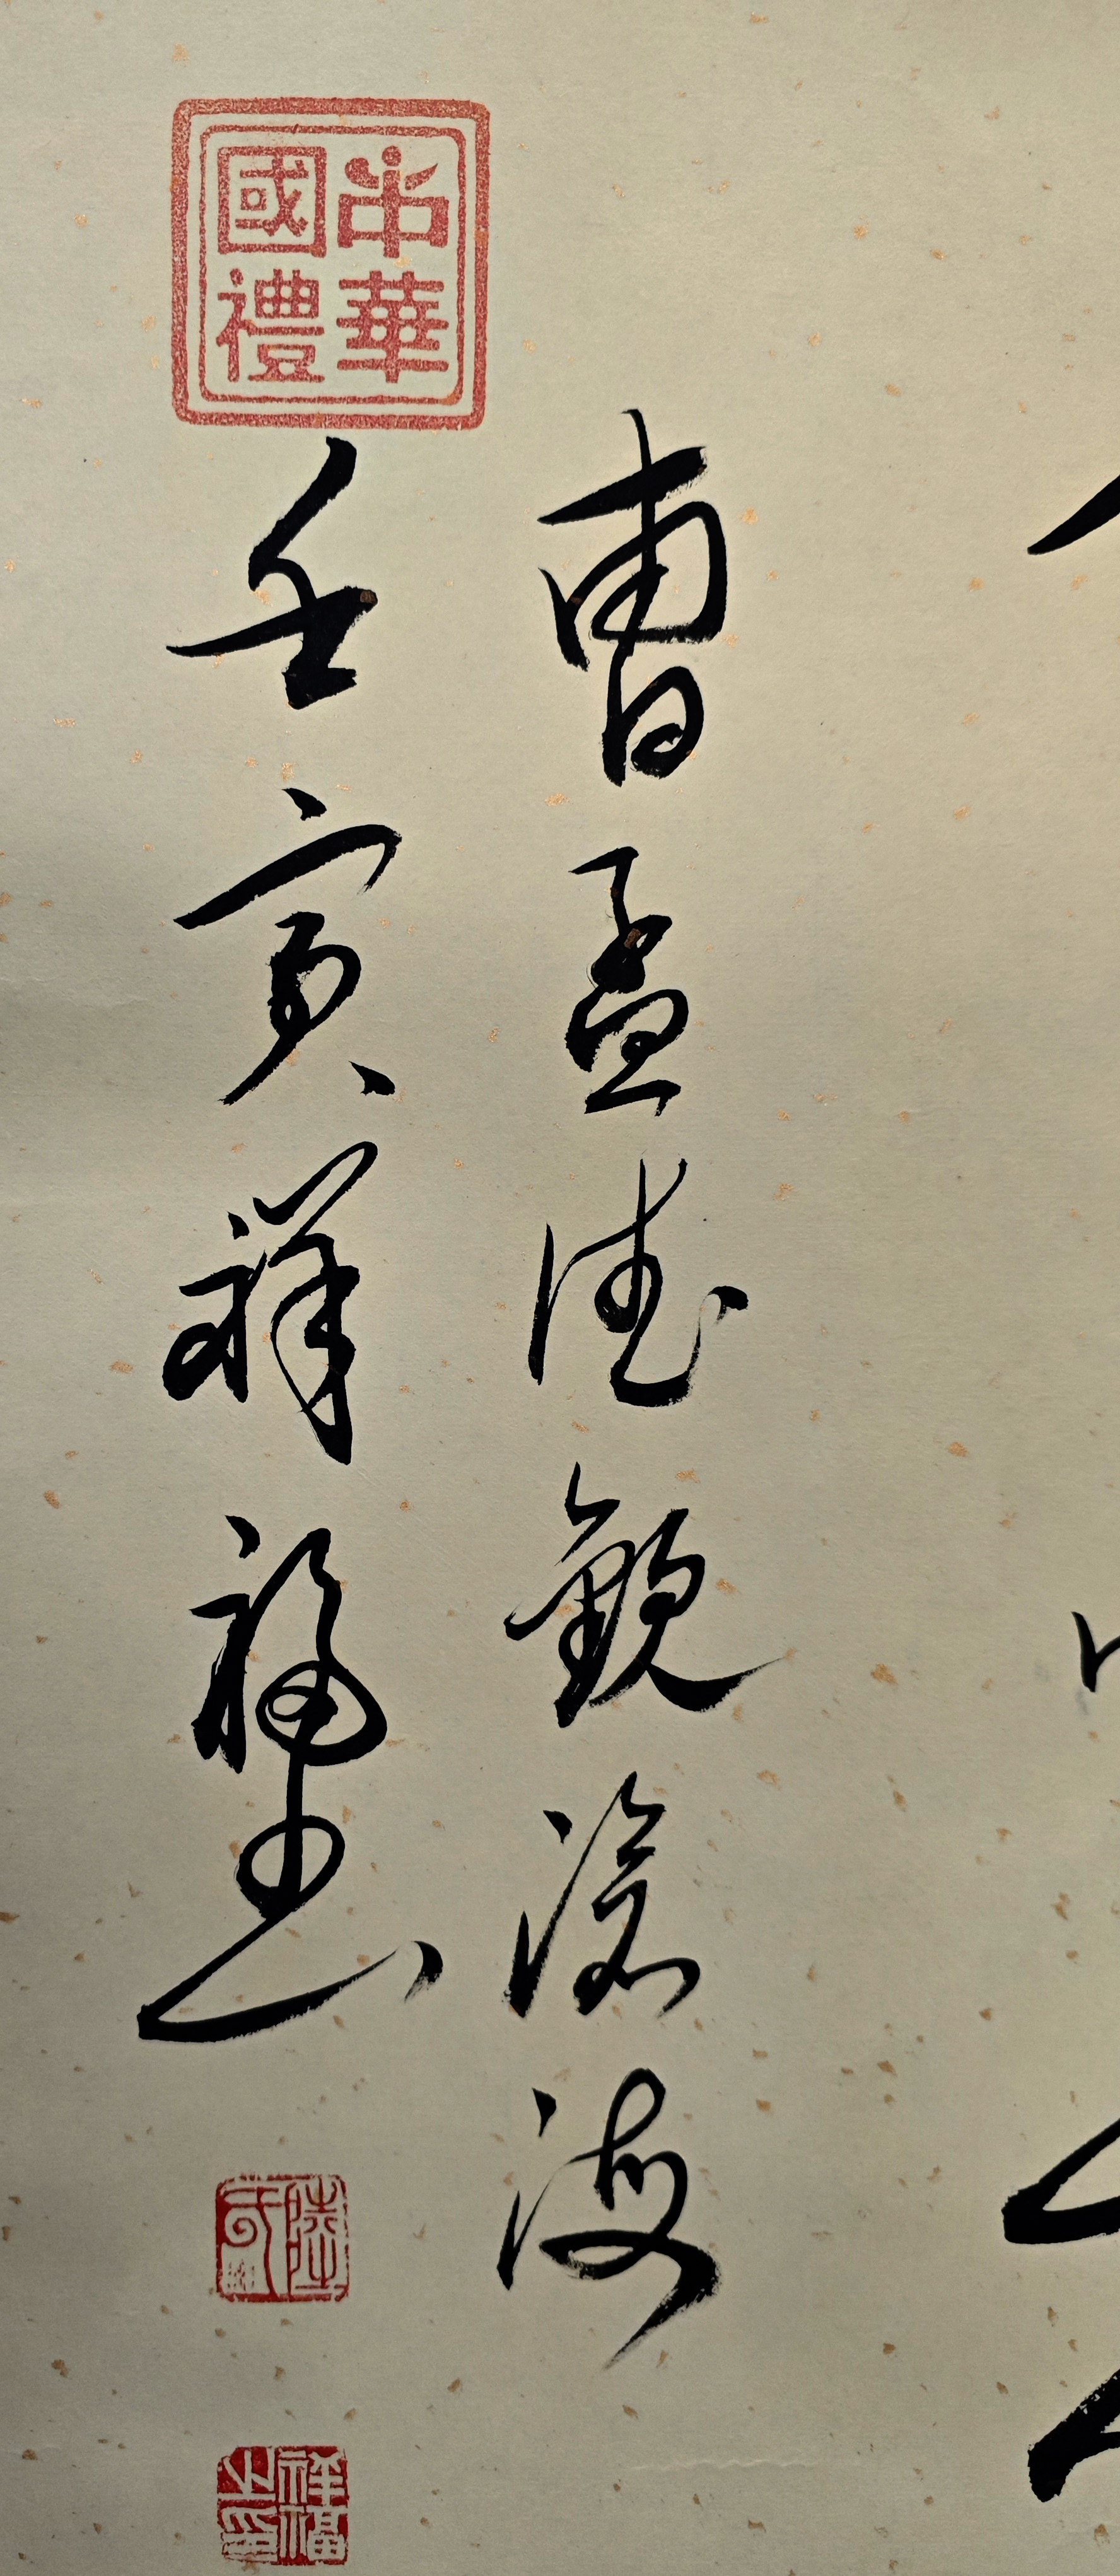 曹孟德觀滄海
中華國禮
壬寅祥福書
陸
祥福之印